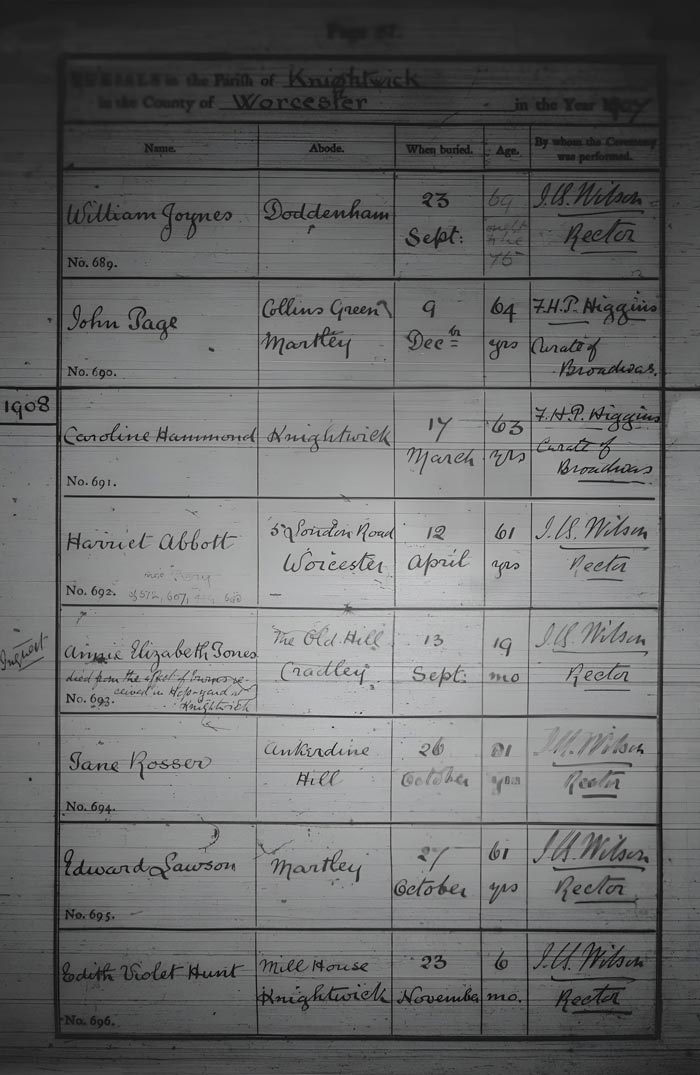 Page 87.
BURIALS in the Parish of Knightwick
in the County of Worcester in the Year 1907
Name. Abode. When buried. Age. By whom the Ceremony was performed.
William Joynes Doddenham 23 69 Wilson
Sept: ought to be 75 Rector
No. 689.
John Page Collins Green 9 64 F.H.P. Higgins
Martley Decbr yrs Curate of
No. 690. Broadwas.
1908
Caroline Hammond Knightwick 17 63 F.H.P. Higgins
March yrs Curate of
No. 691. Broadwas
Harriet Abbott 5 London Road 12 61 Wilson
Worcester April yrs Rector
No. 692. 572, 607,
Inquest
Annie Elizabeth Jones The Old Hill 13 19 Wilson
Cradley Sept: mo Rector
died from the effect of burns re-
ceived in Hop-yard
No. 693. Knightwick
Jane Rosser Ankerdine 26 81 Wilson
Hill October yrs Rector
No. 694.
Edward Lawson Martley 27 61 Wilson
October yrs Rector
No. 695.
Edith Violet Hunt Mill House 23 6 Wilson
Knightwick November mo. Rector
No. 696.